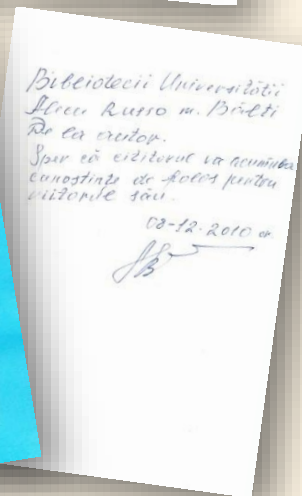 Bibliotecii Universității
Alecu Russo m. Bălți
De la autor.
Sper că cititorul va acumula
cunoștințe de folos pentru
viitorul său.
08-12-2010